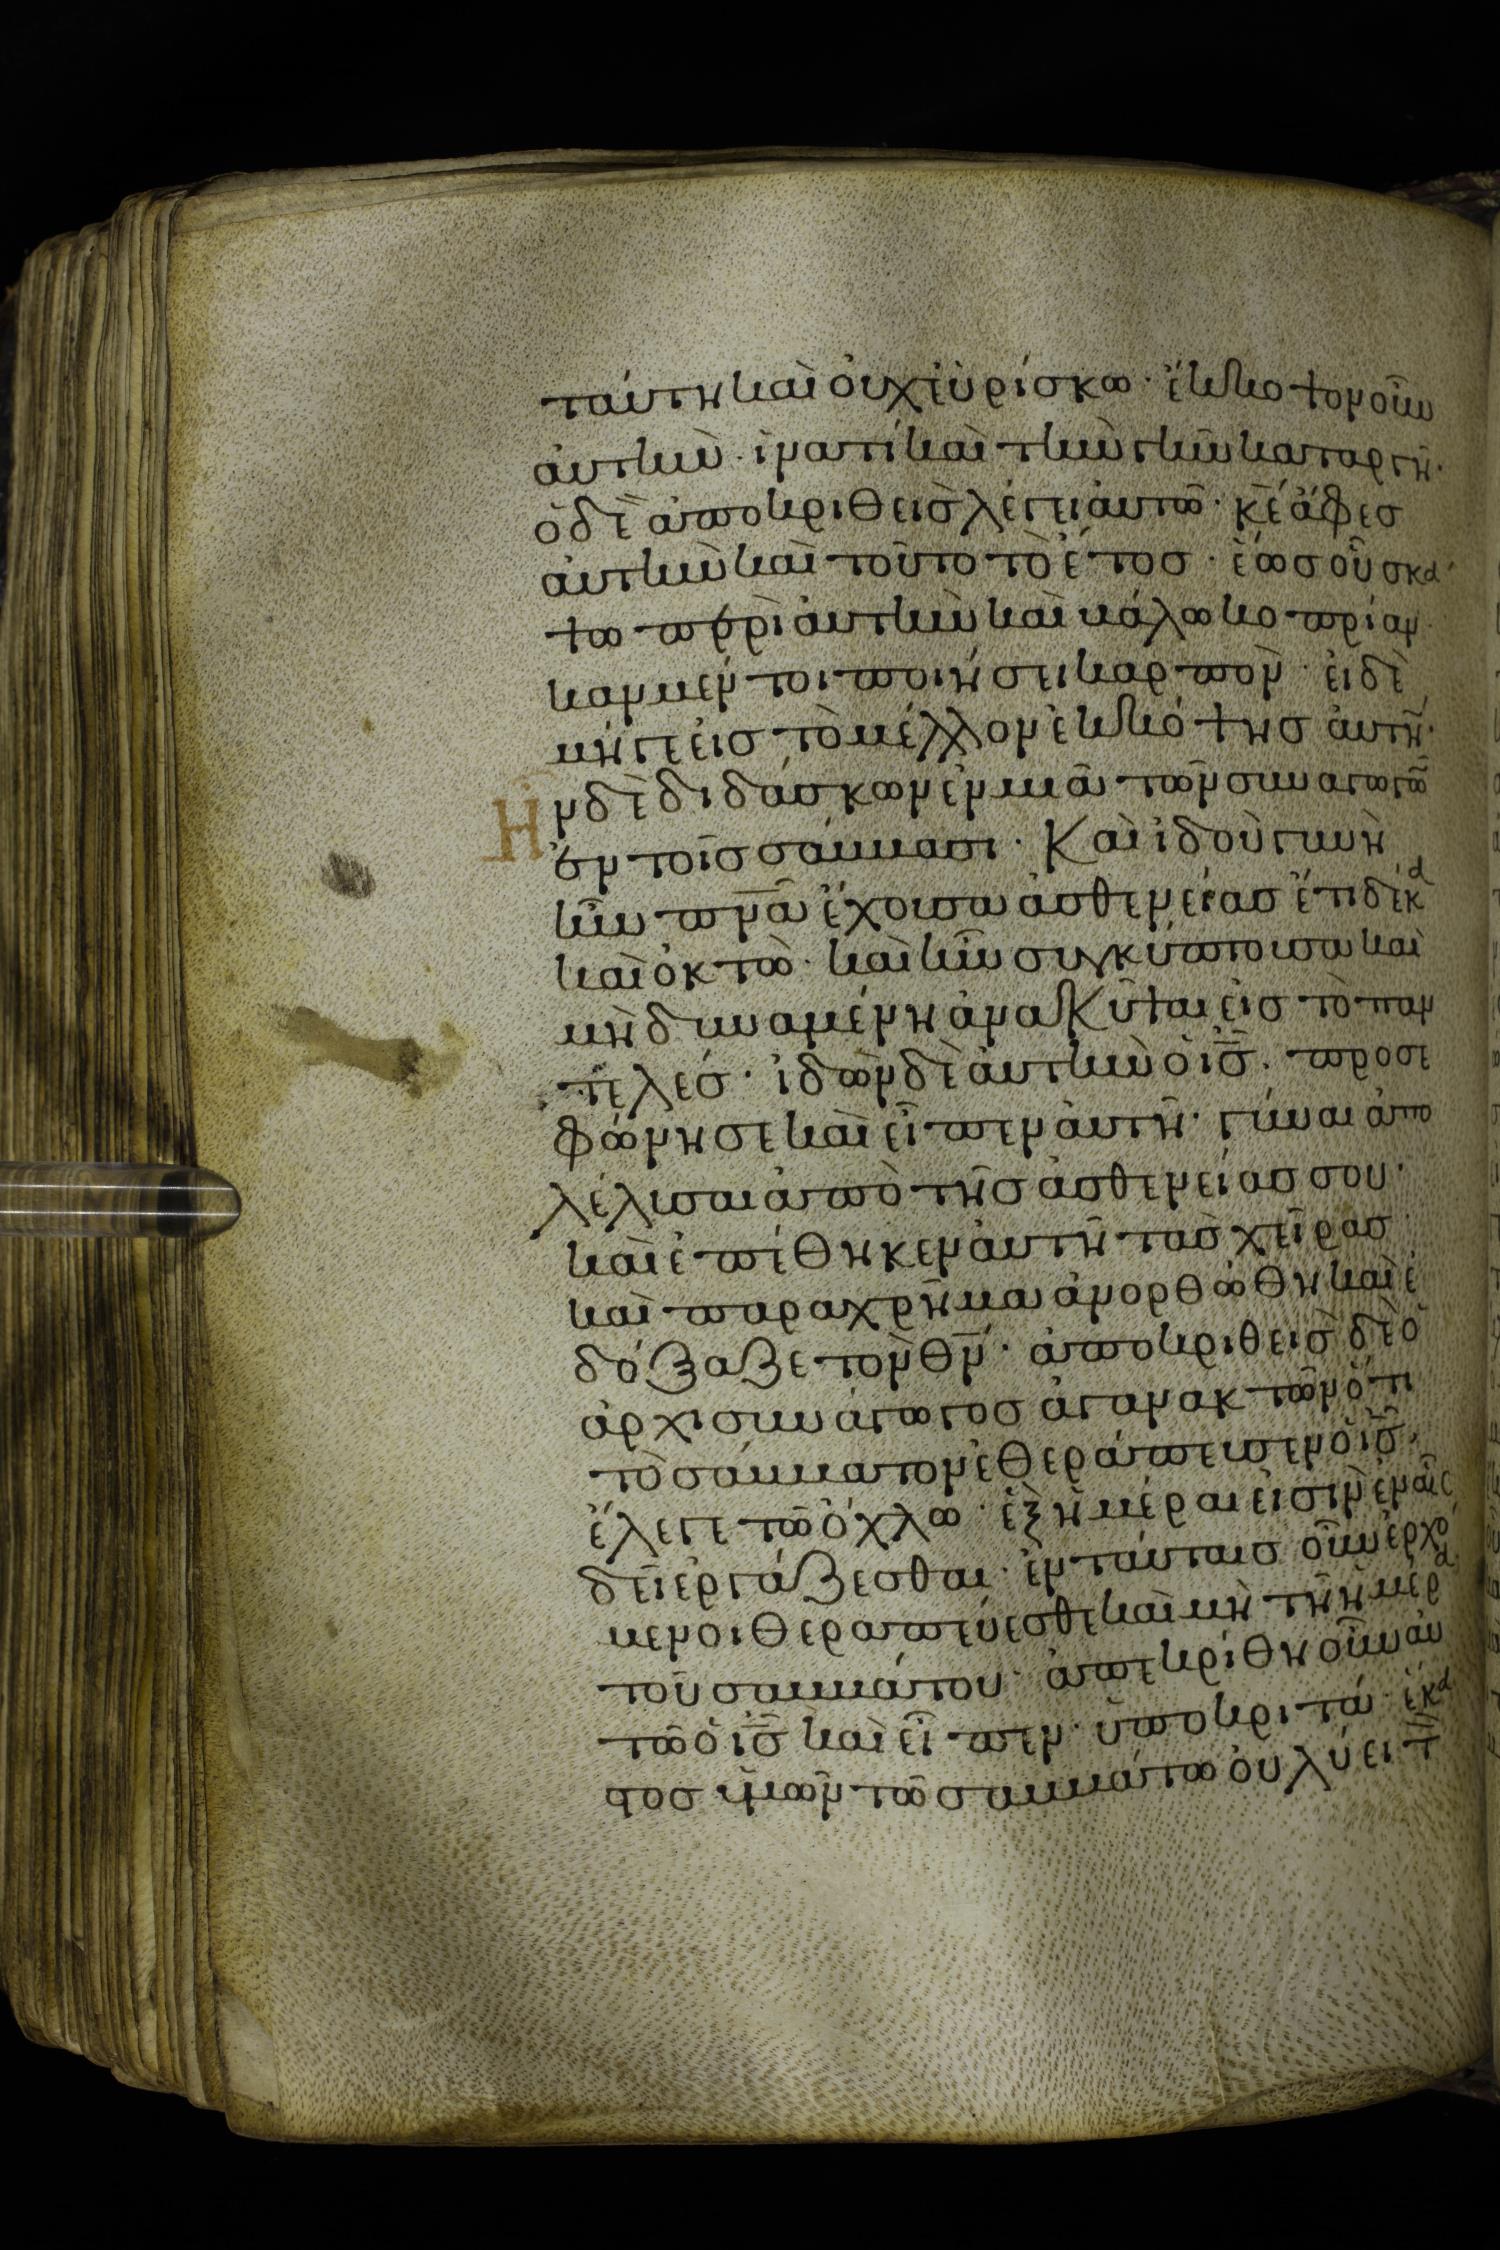 ταύτη καὶ οὐχ εὑρίσκω· ἔκκοψον οὖν
αὐτὴν· ἱνατί καὶ τὴν γῆν καταργεῖ·
ὁ δὲ ἀποκριθεὶς λέγει αὐτῶ· κ̅ε̅ ἄφες
αὐτὴν καὶ τοῦτο τὸ ἔτος· ἕως οὗ σκά
ψω περὶ αὐτὴν καὶ βάλω κοπρίαν·
κἂν μέν τοι ποιήσει καρπὸν· εἰ δὲ
μήγε εἰς τὸ μέλλον ἐκκόψης αὐτήν·
Ἦν δὲ διδάσκων ἐν μιᾶ τῶν συναγωγῶ
ἐν τοῖς σάββασι· Καὶ ἰδοὺ γυνὴ
ἦν π̅ν̅α̅ ἔχουσα ἀσθενείας ἔτι δέκα
καὶ ὀκτὼ· καὶ ἦν συγκύπτουσα καὶ
μὴ δυναμένη ἀνακῦψαι εἰς τὸ παν
τελές· ἰδὼν δὲ αὐτὴν ὁ ι̅ς̅· προσε
φώνησε καὶ εἶπεν αὐτῆ· γύναι ἀπο
λέλυσαι ἀπὸ τῆς ἀσθενείας σου·
καὶ ἐπέθηκεν αὐτῆ τὰς χεῖρας
καὶ παραχρῆμα ἀνορθώθη καὶ ἐ
δόξαζε τὸν θ̅ν̅· ἀποκριθεὶς δὲ ὁ
ἀρχισυνάγωγος ἀγανακτῶν ὅτι
τὸ σάββατον ἐθεράπευσεν ὁ ι̅ς̅·
ἔλεγε τῶ ὄχλω· ἓξ ἡμέραι εἰσὶν ἐν αἷς
δεῖ ἐργάζεσθαι· ἐν ταύταις οὖν ἐρχό
μενοι θεραπεύεσθε καὶ μὴ τῆ ἡμέρα
τοῦ σαββάτου· ἀπεκρίθη οὖν αὐ
τῶ ὁ ι̅ς̅ καὶ εἶπεν· ὑποκριτά· ἕκα
στος ὑμῶν τῶ σαββάτω οὐ λύει τὸ